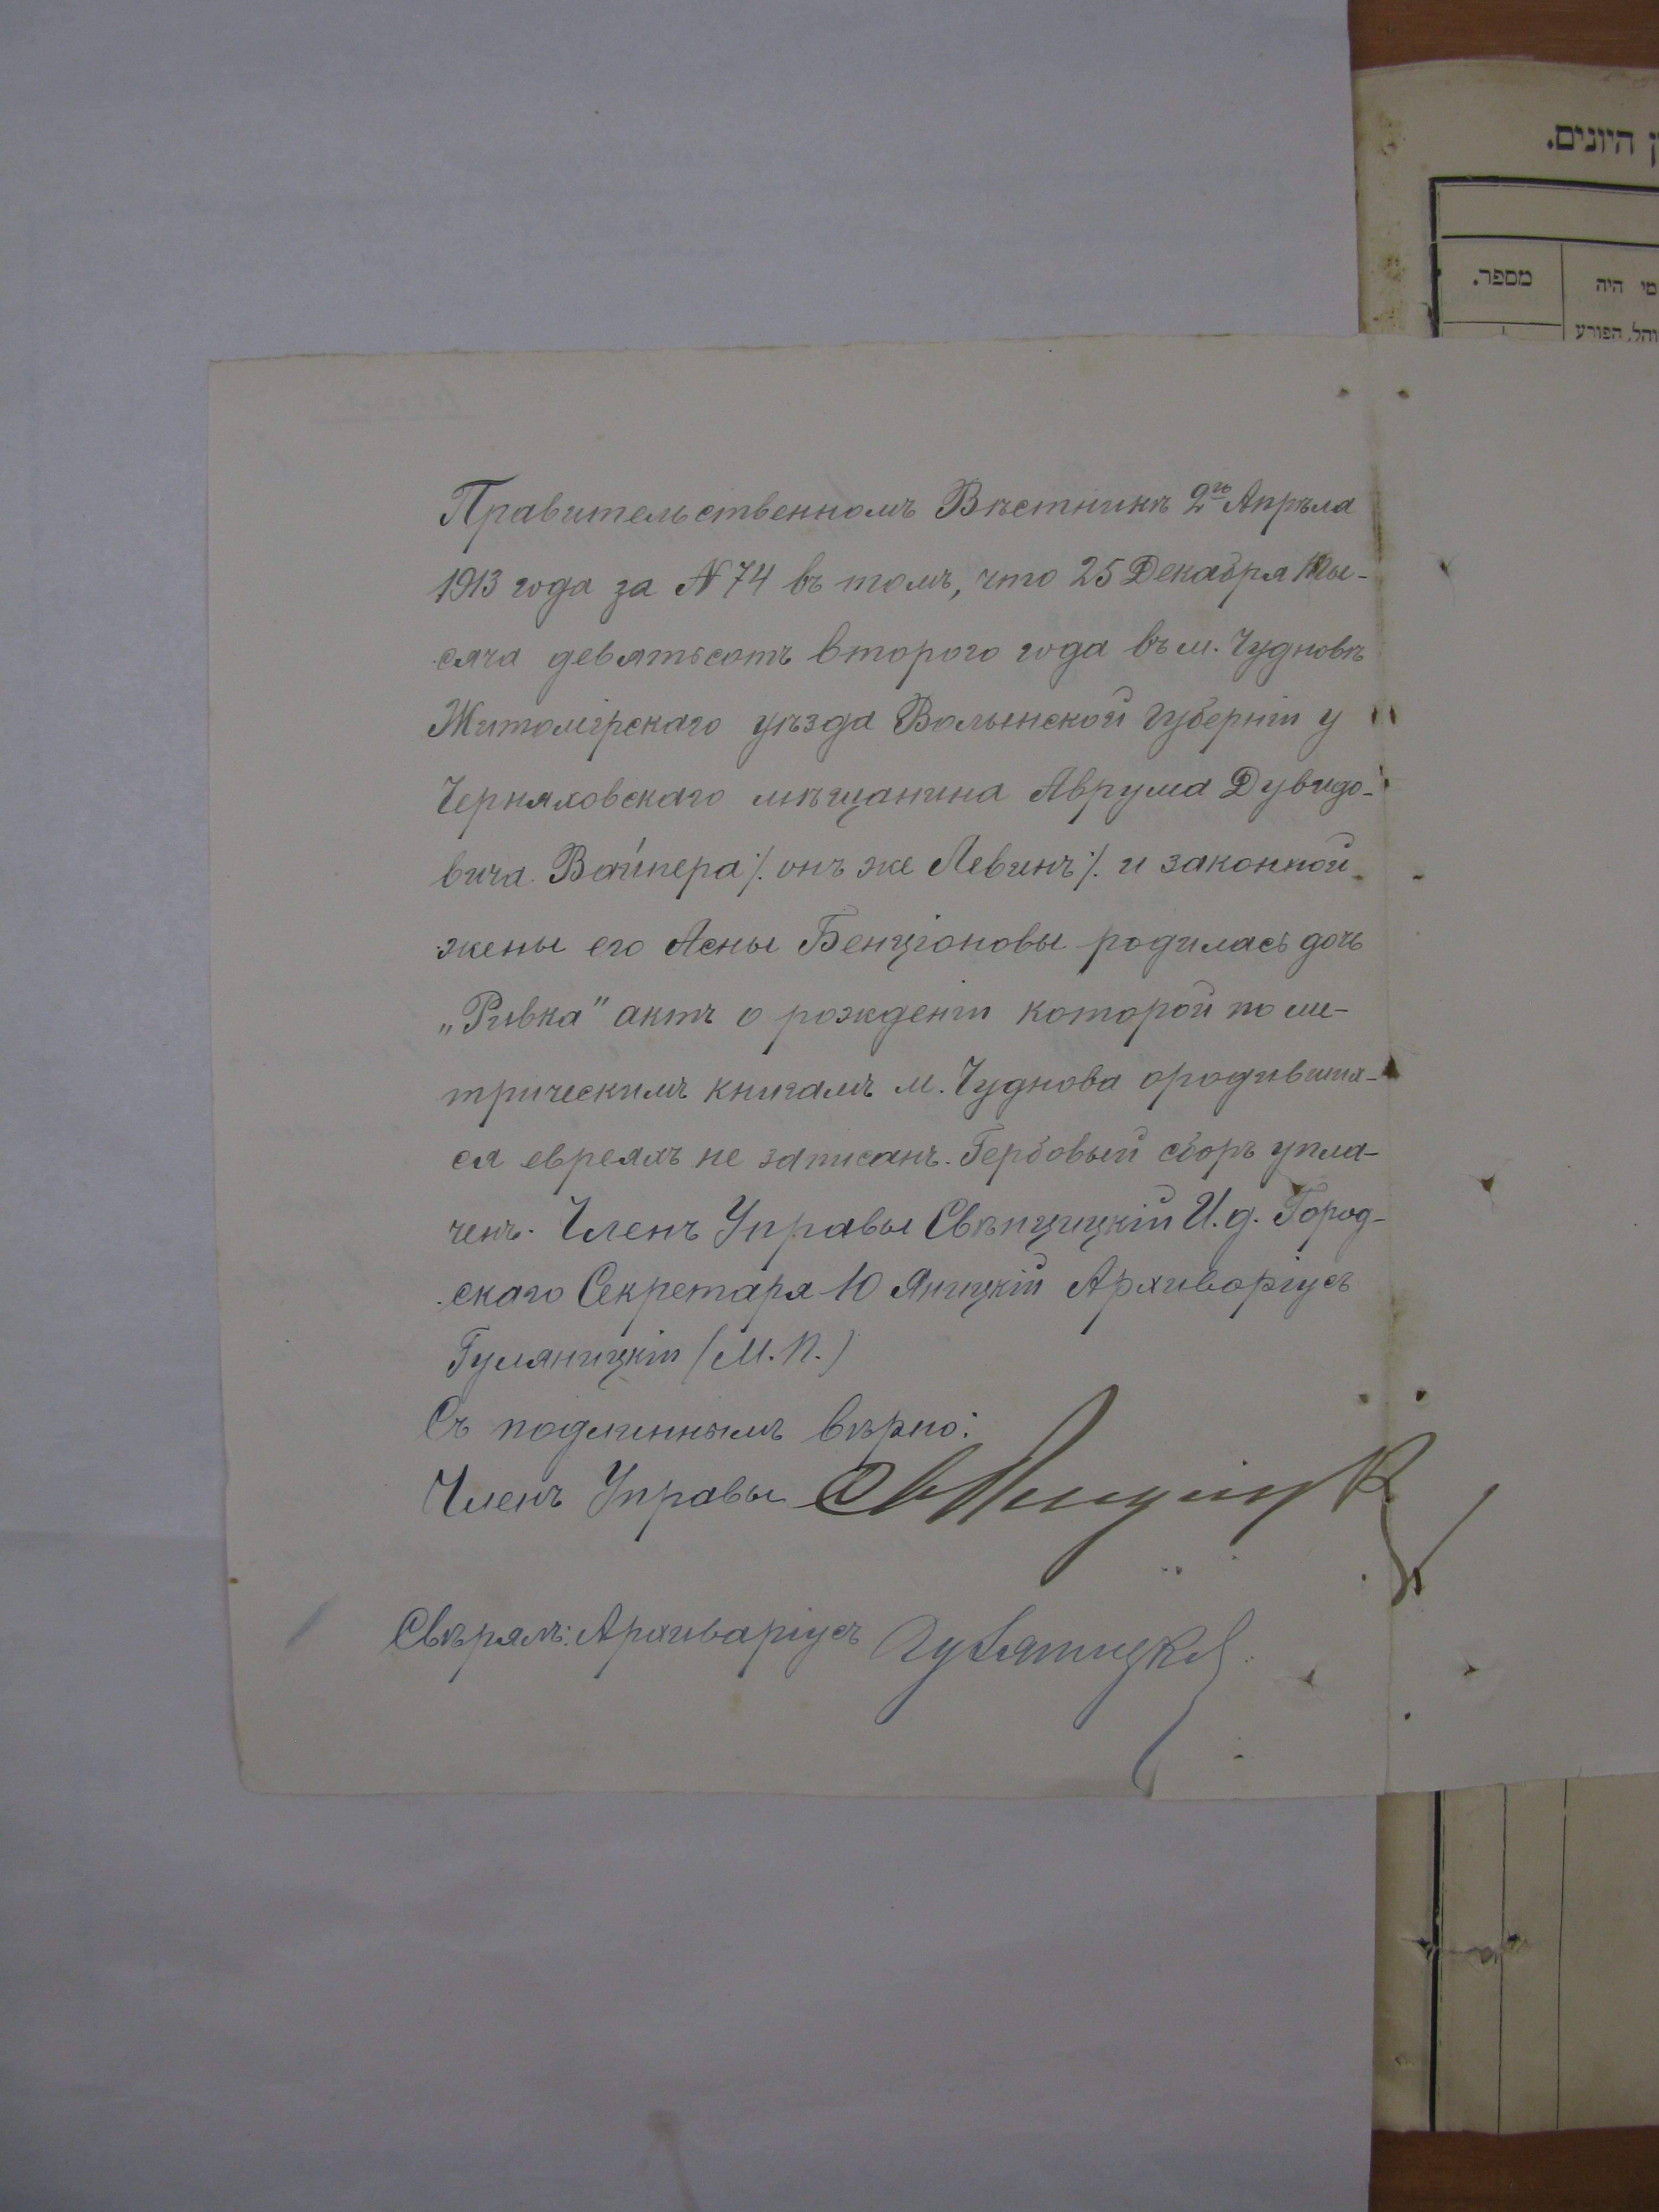 ן היונים.
מספר.
מי היה
והל, הפורע
Правительственномъ Вѣстникѣ 2го Апрѣля
1913 года за N 74 въ томъ, что 25 Декабря ты-
сяча девятьсотъ второго года въ м. Чудновѣ
Житомірскаго уѣзда Волынской губерніи у
Черняховскаго мѣщанина Аврума Дувидо-
вича Вайнера ·/. онъ же Левинъ ·/. и законной
жены его Асны Бенціоновы родилась дочь
„Ривка" актъ о рожденіи которой по ме-
трическимъ книгамъ м. Чуднова о родивших-
ся евреяхъ не записанъ. Гербовый сборъ упла-
ченъ. Членъ Управы Свѣнцицкій И. д. Город-
скаго Секретаря Ю Яницкій Архиваріусъ
Гуляницкій (М. П.)
Съ подлиннымъ вѣрно:
Членъ Управы
Свѣрялъ: Архиваріусъ Гуляницкій